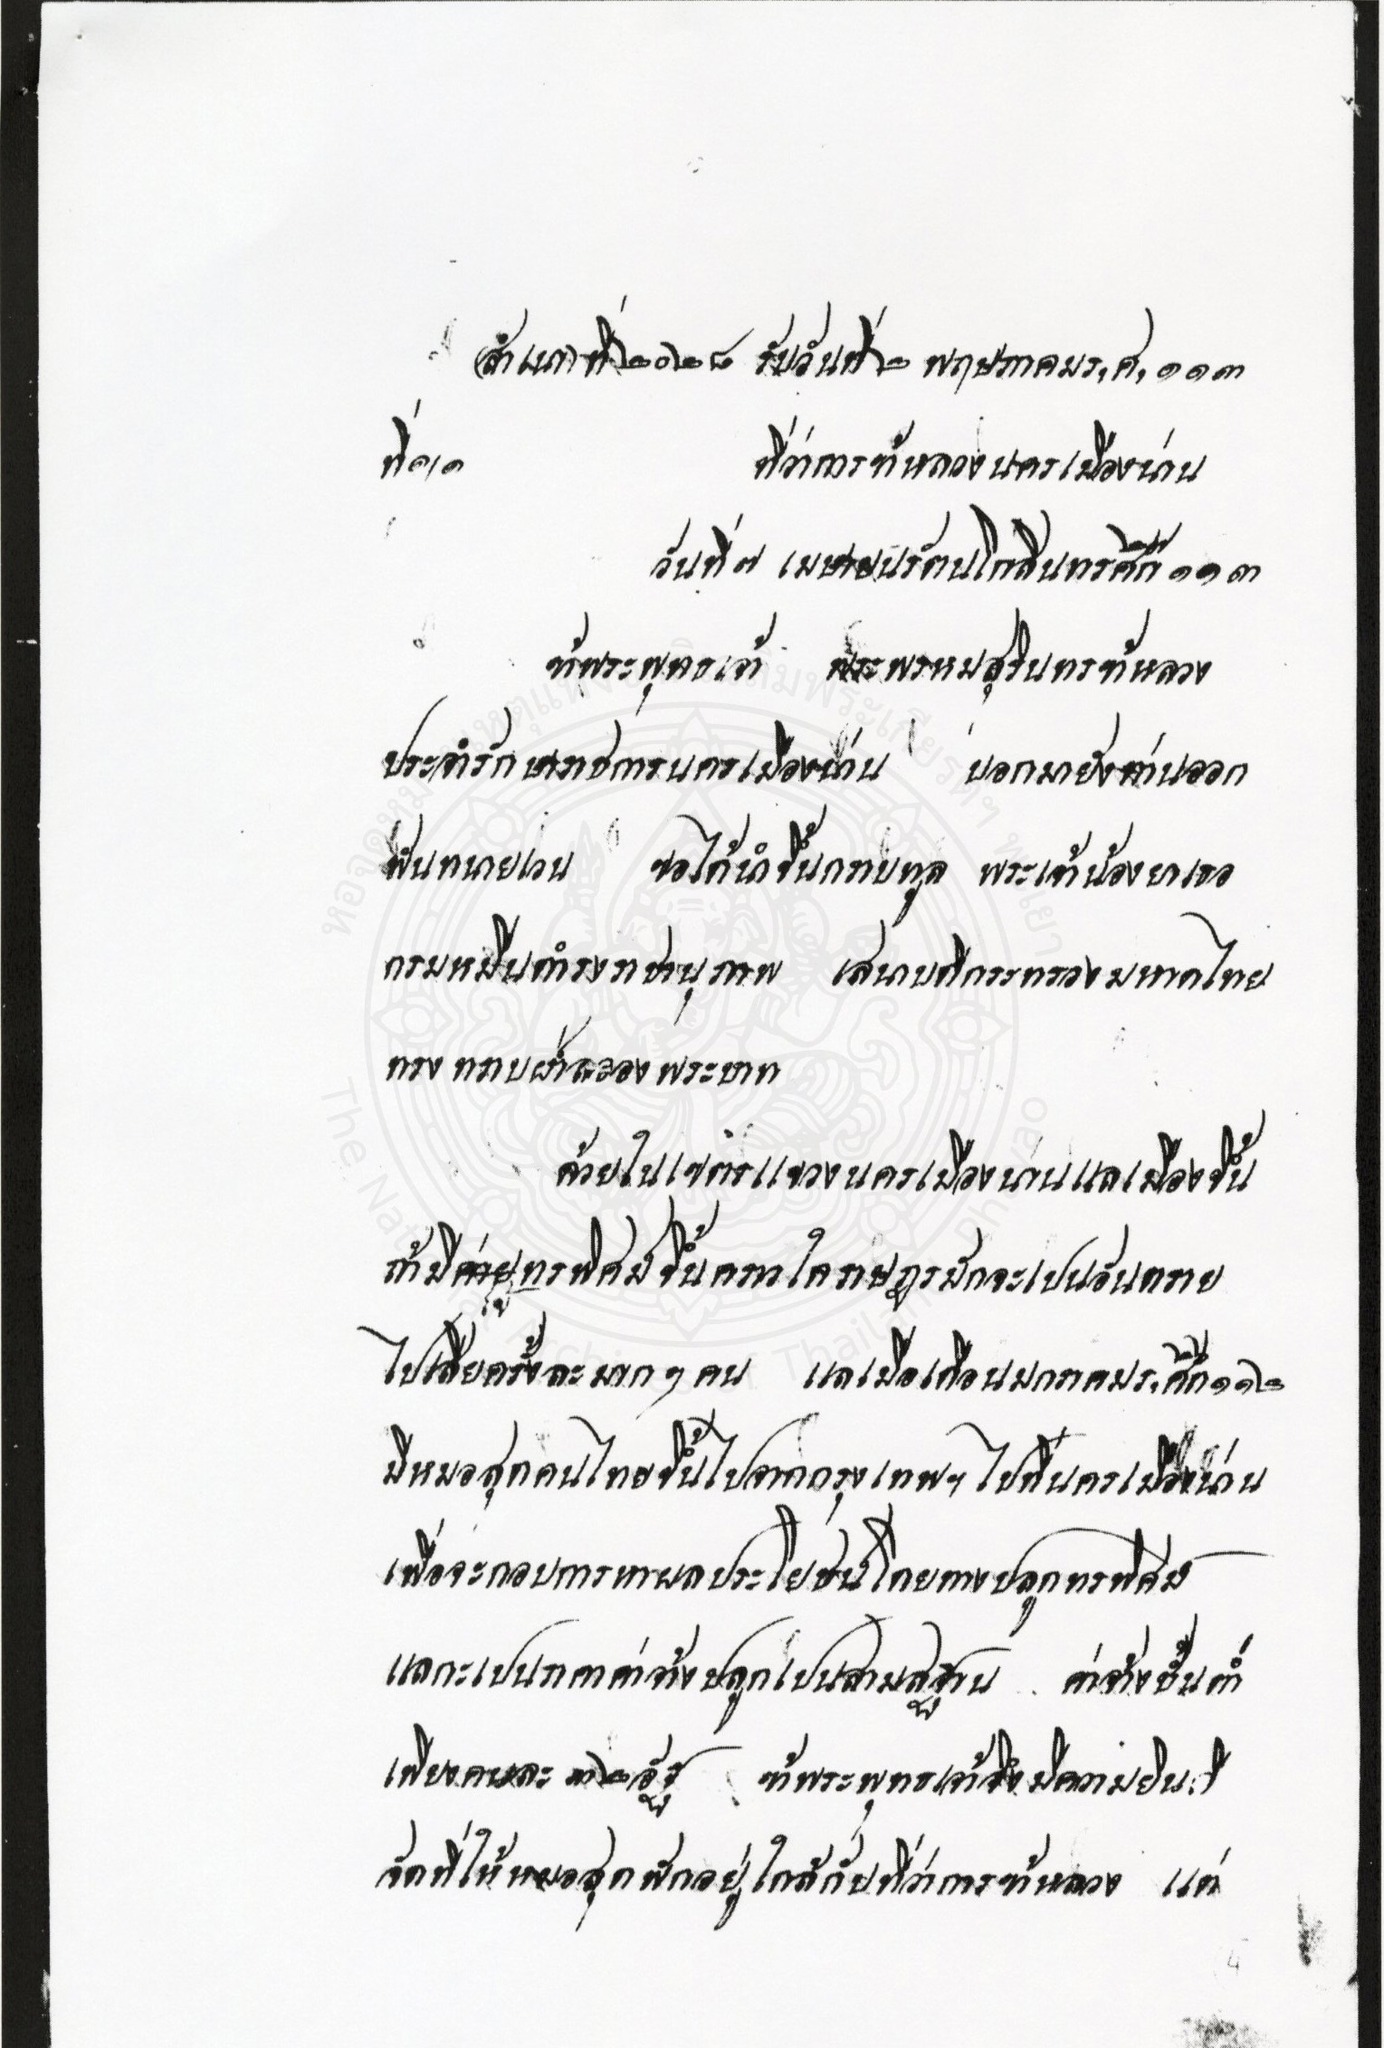 สำเนาที่ ๒๐๒๘ รับวันที่ ๒ พฤษภาคม ร,ศ, ๑๑๓
ที่ ๑/๑ ที่ว่าการข้าหลวงนครเมืองน่าน
วันที่ ๗ เมษายน รัตนโกสินทรศก ๑๑๓
ข้าพระพุทธเจ้า พระพรหมสุรินทรข้าหลวง
ประจำรักษาราชการนครเมืองน่าน บอกมายังท่านออก
พันทนายเวน ขอได้นำขึ้นกราบทูล พระเจ้าน้องยาเธอ
กรมหมื่นดำรงราชานุภาพ เสนาบดีกระทรวงมหาดไทย
ทรงทราบฝ่าลอองพระบาท
ด้วยในเขตรแขวงนครเมืองน่านแลเมืองขึ้น
ถ้ามีทรพิศม์ขึ้นคราวใดราษฎรมักจะเปนอันตราย
ไปเสียครั้งละมาก ๆ คน แลเมื่อเดือนมกราคม ร,ศก ๑๑๒
มีหมอสุกคนไทยขึ้นไปจากกรุงเทพฯ ไปที่นครเมืองน่าน
เพื่อจะกอบการหาผลประโยชน์โดยทางปลูกทรพิศม์
แลกะเปนราคาค่าจ้างปลูกเปนสามสฐาน ค่าจ้างชั้นต่ำ
เพียงคนละ ๓๒ อัฐ ข้าพระพุทธเจ้าจึงมีความยินดี
จัดที่ให้หมอสุกพักอยู่ใกล้กับที่ว่าการข้าหลวง แต่
หอจดหมายเหตุแห่งชาติเฉลิมพระเกียรติฯ พะเยา
The National Archives of Thailand Phayao